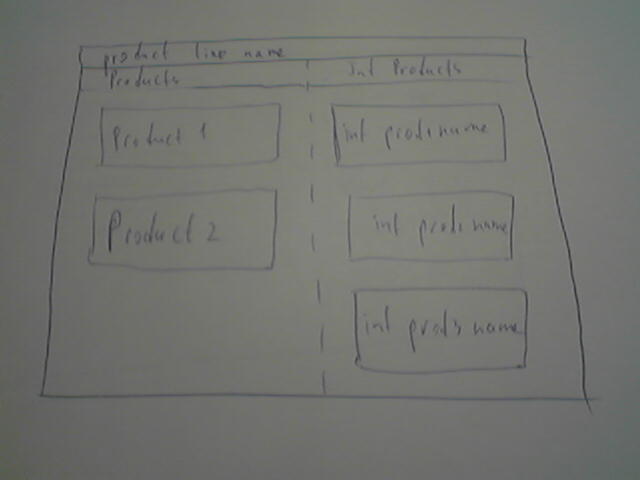 product line name
Products
Int Products
Product 1
int prod1 name
Product 2
int prod2 name
int prod3 name